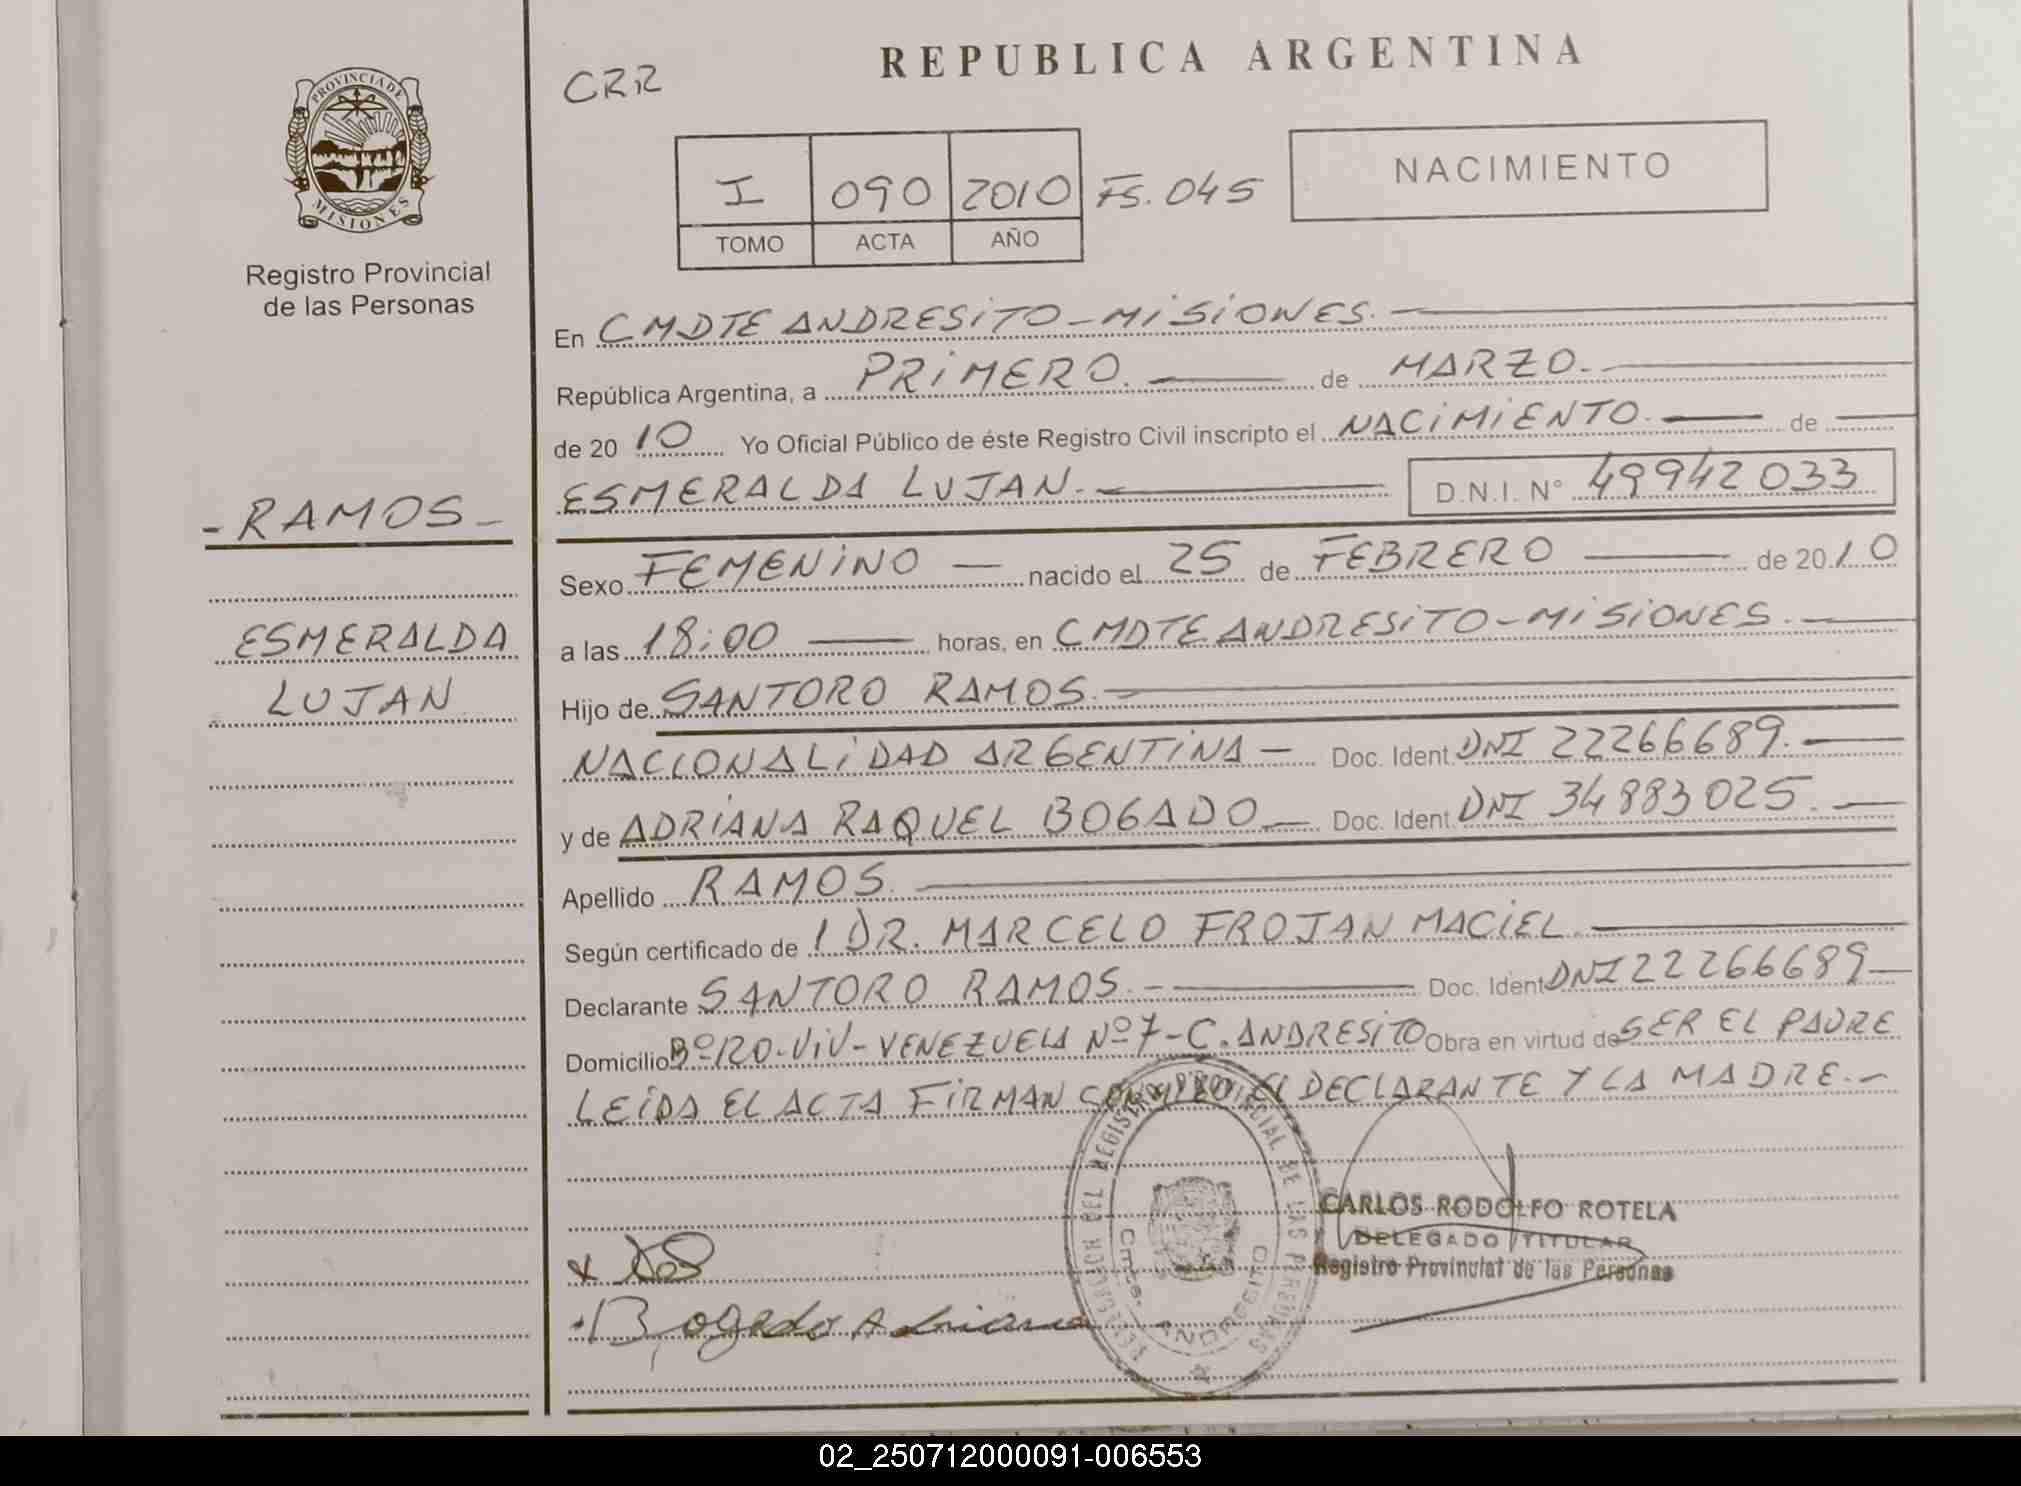 PROVINCIA DE
MISIONES
Registro Provincial
de las Personas
- RAMOS -
ESMERALDA
LUJAN
CRR
REPUBLICA ARGENTINA
I 090 2010 FS. 045
TOMO ACTA AÑO
NACIMIENTO
En CMDTE ANDRESITO - MISIONES.
República Argentina, a PRIMERO. de MARZO.
de 20 10 Yo Oficial Público de éste Registro Civil inscripto el NACIMIENTO. de
ESMERALDA LUJAN. D.N.I. N° 49942033
Sexo FEMENINO — nacido el 25 de FEBRERO de 20 10
a las 18:00 horas, en CMDTE ANDRESITO - MISIONES.
Hijo de SANTORO RAMOS.
NACIONALIDAD ARGENTINA - Doc. Ident. DNI 22266689.
y de ADRIANA RAQUEL BOGADO Doc. Ident. DNI 34883025.
Apellido RAMOS.
Según certificado de DR. MARCELO FROJAN MACIEL.
Declarante SANTORO RAMOS. Doc. Ident DNI 22266689
Domicilio B° RO-VIV - VENEZUELA Nº 7 - C. ANDRESITO Obra en virtud de SER EL PADRE
LEIDA EL ACTA FIRMAN CONMIGO EL DECLARANTE Y LA MADRE.-
DEL REGISTRO PROVINCIAL DE LAS PERSONAS
Cmte. ANDRESITO
CARLOS RODOLFO ROTELA
DELEGADO TITULAR
Registro Provincial de las Personas
Bogado Adriana
02_250712000091-006553